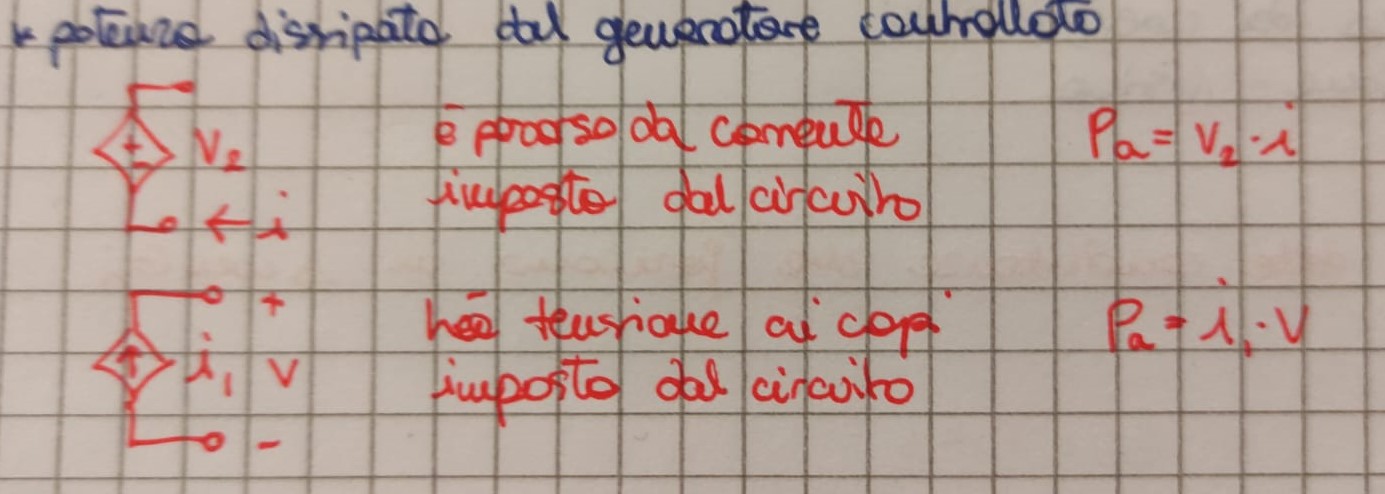 potenza dissipata dal generatore controllato
+
-
V₂
← i
è percorso da corrente
imposta dal circuito
Pa = V₂ · i
+
i₁ V
-
ha tensione ai capi
imposta dal circuito
Pa = i₁ · V